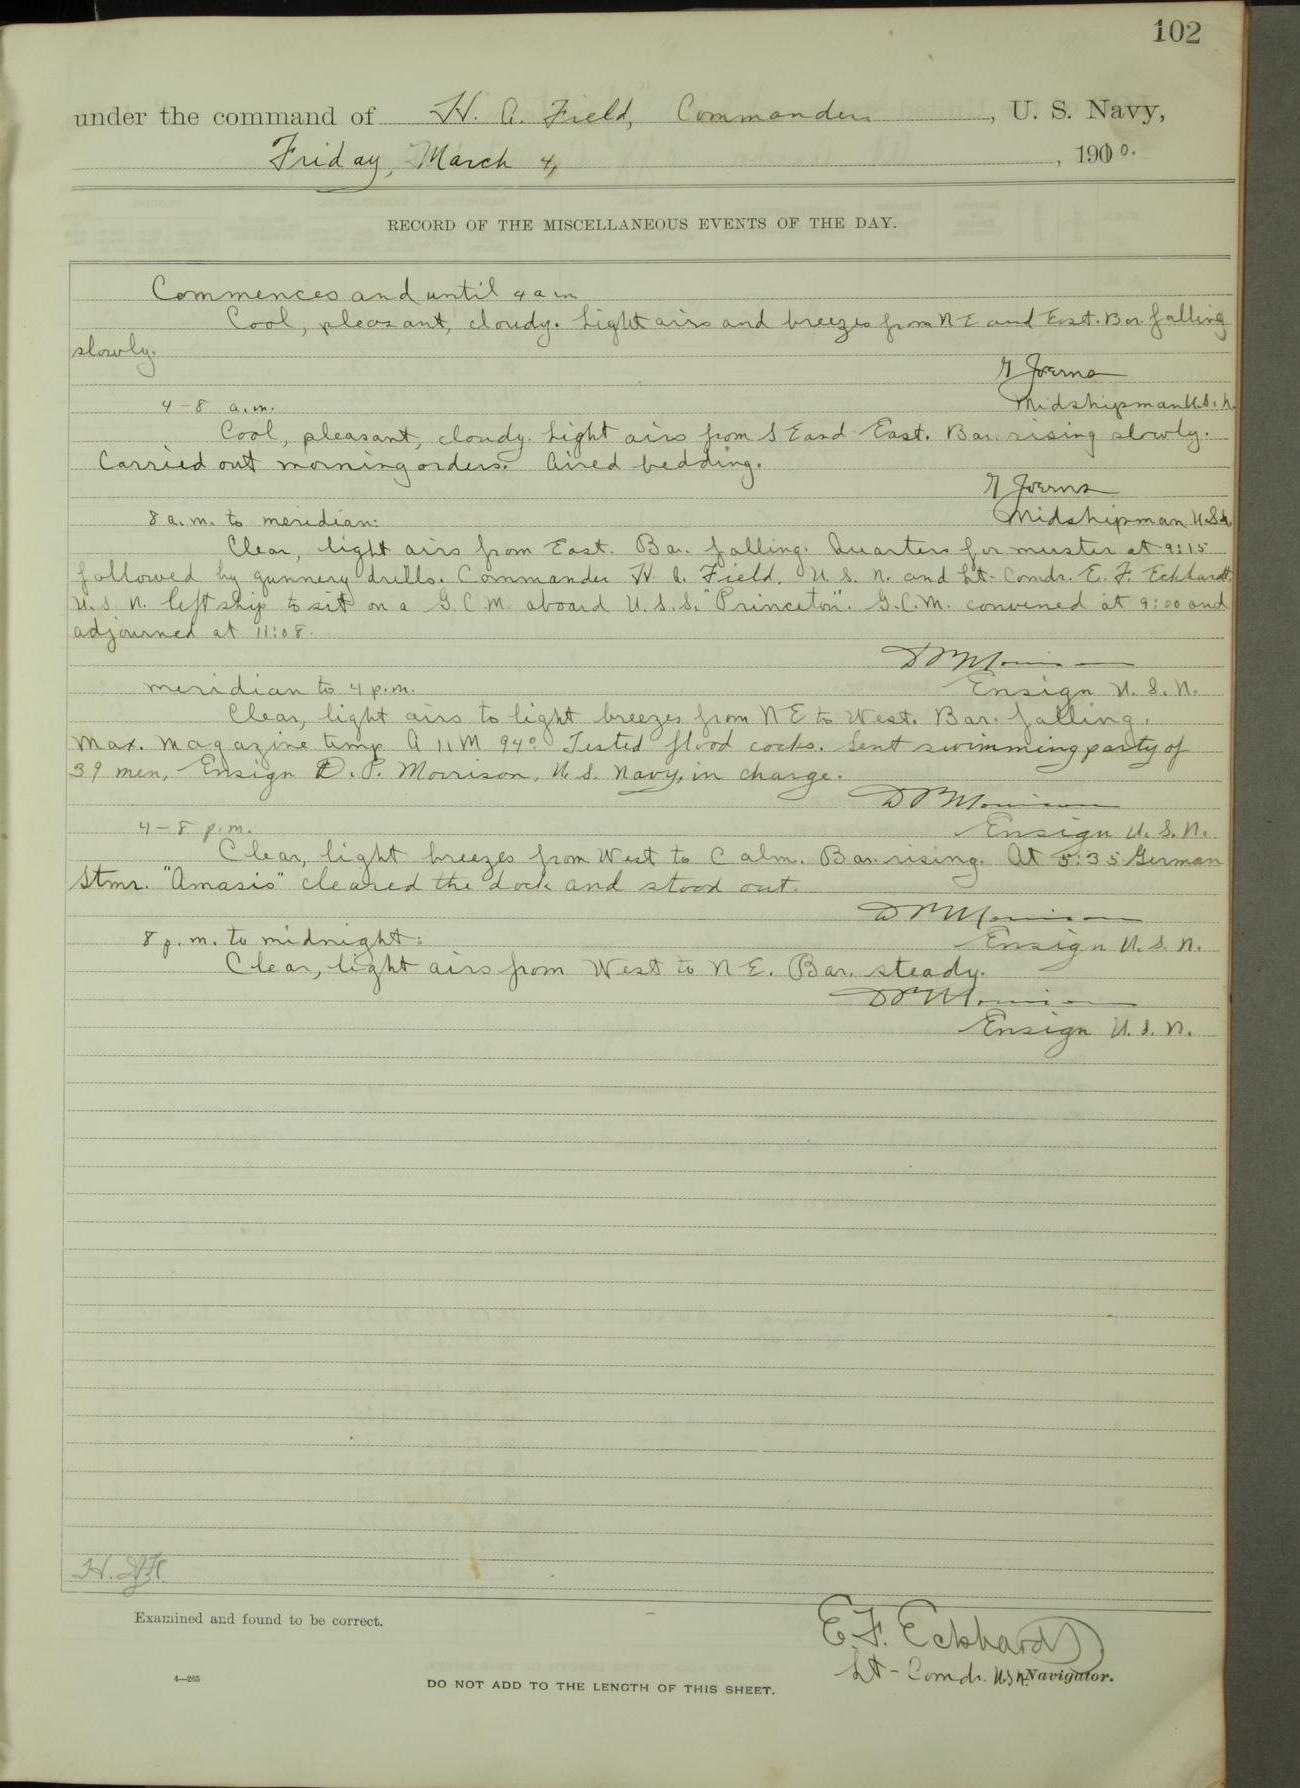 102
under the command of H. A. Field, Commander, U. S. Navy,
Friday, March 4, 1910.
RECORD OF THE MISCELLANEOUS EVENTS OF THE DAY.
Commences and until 4 a m
Cool, pleasant, cloudy. Light airs and breezes from N E and East. Bar. falling
slowly.
G Joerns
4-8 a.m.
Midshipman U.S.N.
Cool, pleasant, cloudy. Light airs from S E and East. Bar. rising slowly.
Carried out morning orders. Aired bedding.
G Joerns
8 a.m. to meridian:
Midshipman U.S.N.
Clear, light airs from East. Bar. falling. Quarters for muster at 9:15
followed by gunnery drills. Commander H. A. Field, U. S. N. and Lt-Comdr. E. F. Eckhardt,
U. S. N. left ship to sit on a G. C. M. aboard U. S. S. "Princeton". G. C. M. convened at 9:00 and
adjourned at 11:08.
D P Morrison
Ensign U. S. N.
Meridian to 4 p.m.
Clear, light airs to light breezes from N E to West. Bar. falling.
Max. magazine temp A 11 M 94° Tested flood cocks. Sent swimming party of
39 men, Ensign D. P. Morrison, U. S. Navy, in charge.
D P Morrison
4-8 p.m.
Ensign U. S. N.
Clear, light breezes from West to Calm. Bar. rising. At 5:35 German
Stmr. "Amasis" cleared the dock and stood out.
D P Morrison
8 p. m. to midnight:
Ensign U. S. N.
Clear, light airs from West to N E. Bar. steady.
D P Morrison
Ensign U. S. N.
H. A. F.
Examined and found to be correct.
E. F. Eckhardt
Lt-Comdr. U.S.N. Navigator.
4—265
DO NOT ADD TO THE LENGTH OF THIS SHEET.